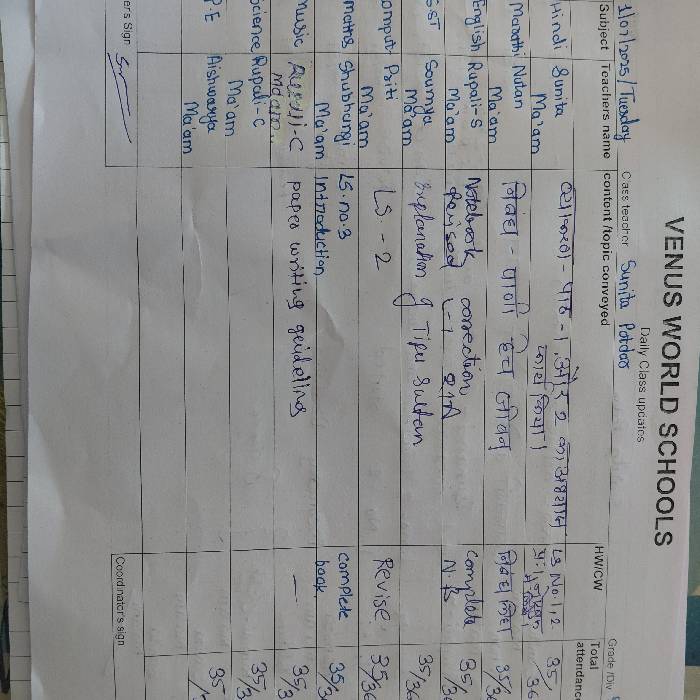 VENUS WORLD SCHOOLS
Daily Class updates
1/07/2025/Tuesday Class teacher Sunita Potdar Grade /Div
Subject Teachers name content /topic conveyed HW/CW Total attendanc
Hindi Sunita Ma'am व्याकरण - पाठ - 1, और 2 का अभ्यास Ls No. 1, 2 35/36
कार्य किया।
Marathi Nutan Ma'am निबंध - पाणी हेच जीवन निबंध 35/3
English Rupali-S Ma'am Notebook correction complete N.B 35/3
L-1 Q/A
SST Soumya Ma'am Explanation of Tipu Sultan 35/36
Comput Priti Ma'am LS. - 2 Revise 35/36
maths Shubhangi Ma'am Ls. no. 3 complete book 35/3
Introduction
music Rupali-C Ma'am paper writing guidelling — 35/3
Science Rupali-C Ma'am 35/3
P.E Aishwarya Ma'am 35/
er's Sign Coordinator's sign